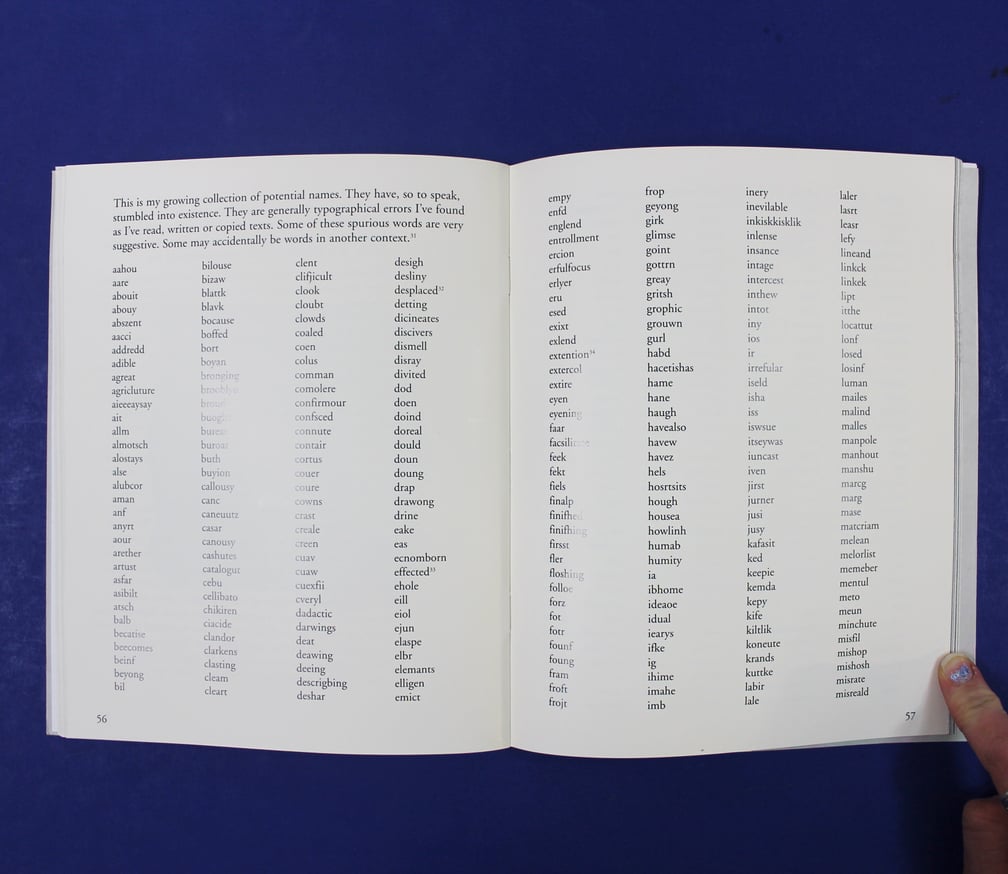 This is my growing collection of potential names. They have, so to speak,
stumbled into existence. They are generally typographical errors I've found
as I've read, written or copied texts. Some of these spurious words are very
suggestive. Some may accidentally be words in another context.³¹
aahou
aare
abouit
abouy
abszent
aacci
addredd
adible
agreat
agricluture
aieeeaysay
ait
allm
almotsch
alostays
alse
alubcor
aman
anf
anyrt
aour
arether
artust
asfar
asibilt
atsch
balb
becatise
beecomes
beinf
beyong
bil
bilouse
bizaw
blattk
blavk
bocause
boffed
bort
boyan
bronging
buth
buyion
callousy
canc
caneuutz
casar
canousy
cashutes
catalogut
cebu
cellibato
chikiren
ciacide
clandor
clarkens
clasting
cleam
cleart
clent
clifjicult
clook
cloubt
clowds
coaled
coen
colus
comman
comolere
confirmour
confsced
connute
contair
cortus
couer
coure
cowns
crast
creale
creen
cuav
cuaw
cuexfii
cveryl
dadactic
darwings
deat
deawing
deeing
descrigbing
deshar
desigh
desliny
desplaced³²
detting
dicineates
discivers
dismell
disray
divited
dod
doen
doind
doreal
dould
doun
doung
drap
drawong
drine
eake
eas
ecnomborn
effected³³
ehole
eill
eiol
ejun
elaspe
elbr
elemants
elligen
emict
56
empy
enfd
englend
entrollment
ercion
erfulfocus
erlyer
eru
esed
exixt
exlend
extention³⁴
extercol
extire
eyen
eyening
faar
feek
fekt
fiels
finalp
finifhed
finifhing
firsst
fler
floshing
folloe
forz
fot
fotr
founf
foung
fram
froft
frojt
frop
geyong
girk
glimse
goint
gottrn
greay
gritsh
grophic
grouwn
gurl
habd
hacetishas
hame
hane
haugh
havealso
havew
havez
hels
hosrtsits
hough
housea
howlinh
humab
humity
ia
ibhome
ideaoe
idual
iearys
ifke
ig
ihime
imahe
imb
inery
inevilable
inkiskkisklik
inlense
insance
intage
intercest
inthew
intot
iny
ios
ir
irrefular
iseld
isha
iss
iswsue
itseywas
iuncast
iven
jirst
jurner
jusi
jusy
kafasit
ked
keepie
kemda
kepy
kife
kiltlik
koneute
krands
kuttke
labir
lale
laler
lasrt
leasr
lefy
lineand
linkck
linkek
lipt
itthe
locattut
lonf
losed
losinf
luman
mailes
malind
malles
manpole
manhout
manshu
marcg
marg
mase
matcriam
melean
melorlist
memeber
mentul
meto
meun
minchute
misfil
mishop
mishosh
misrate
misreald
57